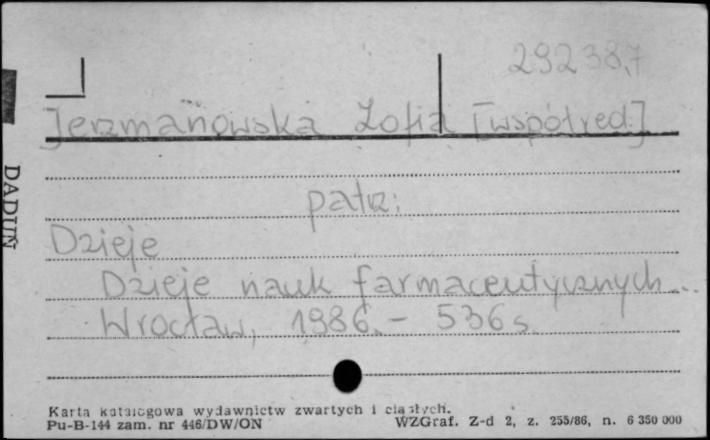 292387
Jerzmanowska Zofia [współred.]
patrz:
Dzieje
Dzieje nauk farmaceutycznych...
Wrocław, 1986. - 536 s.
DADUŃ
Karta katalogowa wydawnictw zwartych i ciągłych.
Pu-B-144 zam. nr 446/DW/ON WZGraf. Z-d 2, z. 255/86, n. 6 350 000